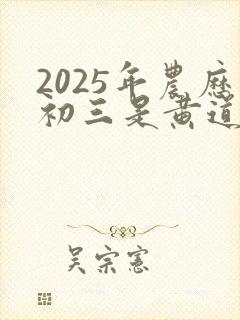 2025年農历
初三是黄道
吴宗憲